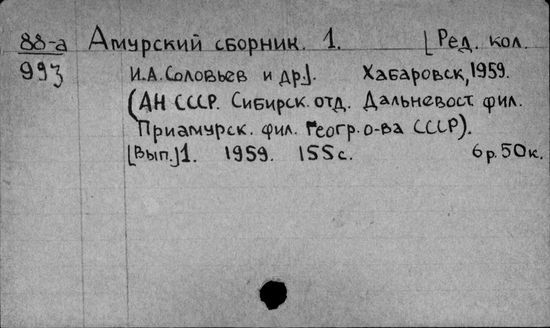 88-а Амурский сборник. 1. [Ред. кол.
993 И.А. Соловьев и др.]. Хабаровск, 1959.
(АН СССР. Сибирск. отд. Дальневост. фил.
Приамурск. фил. Геогр. о-ва СССР).
[Вып.] 1. 1959. 155 с. 6 р. 50 к.